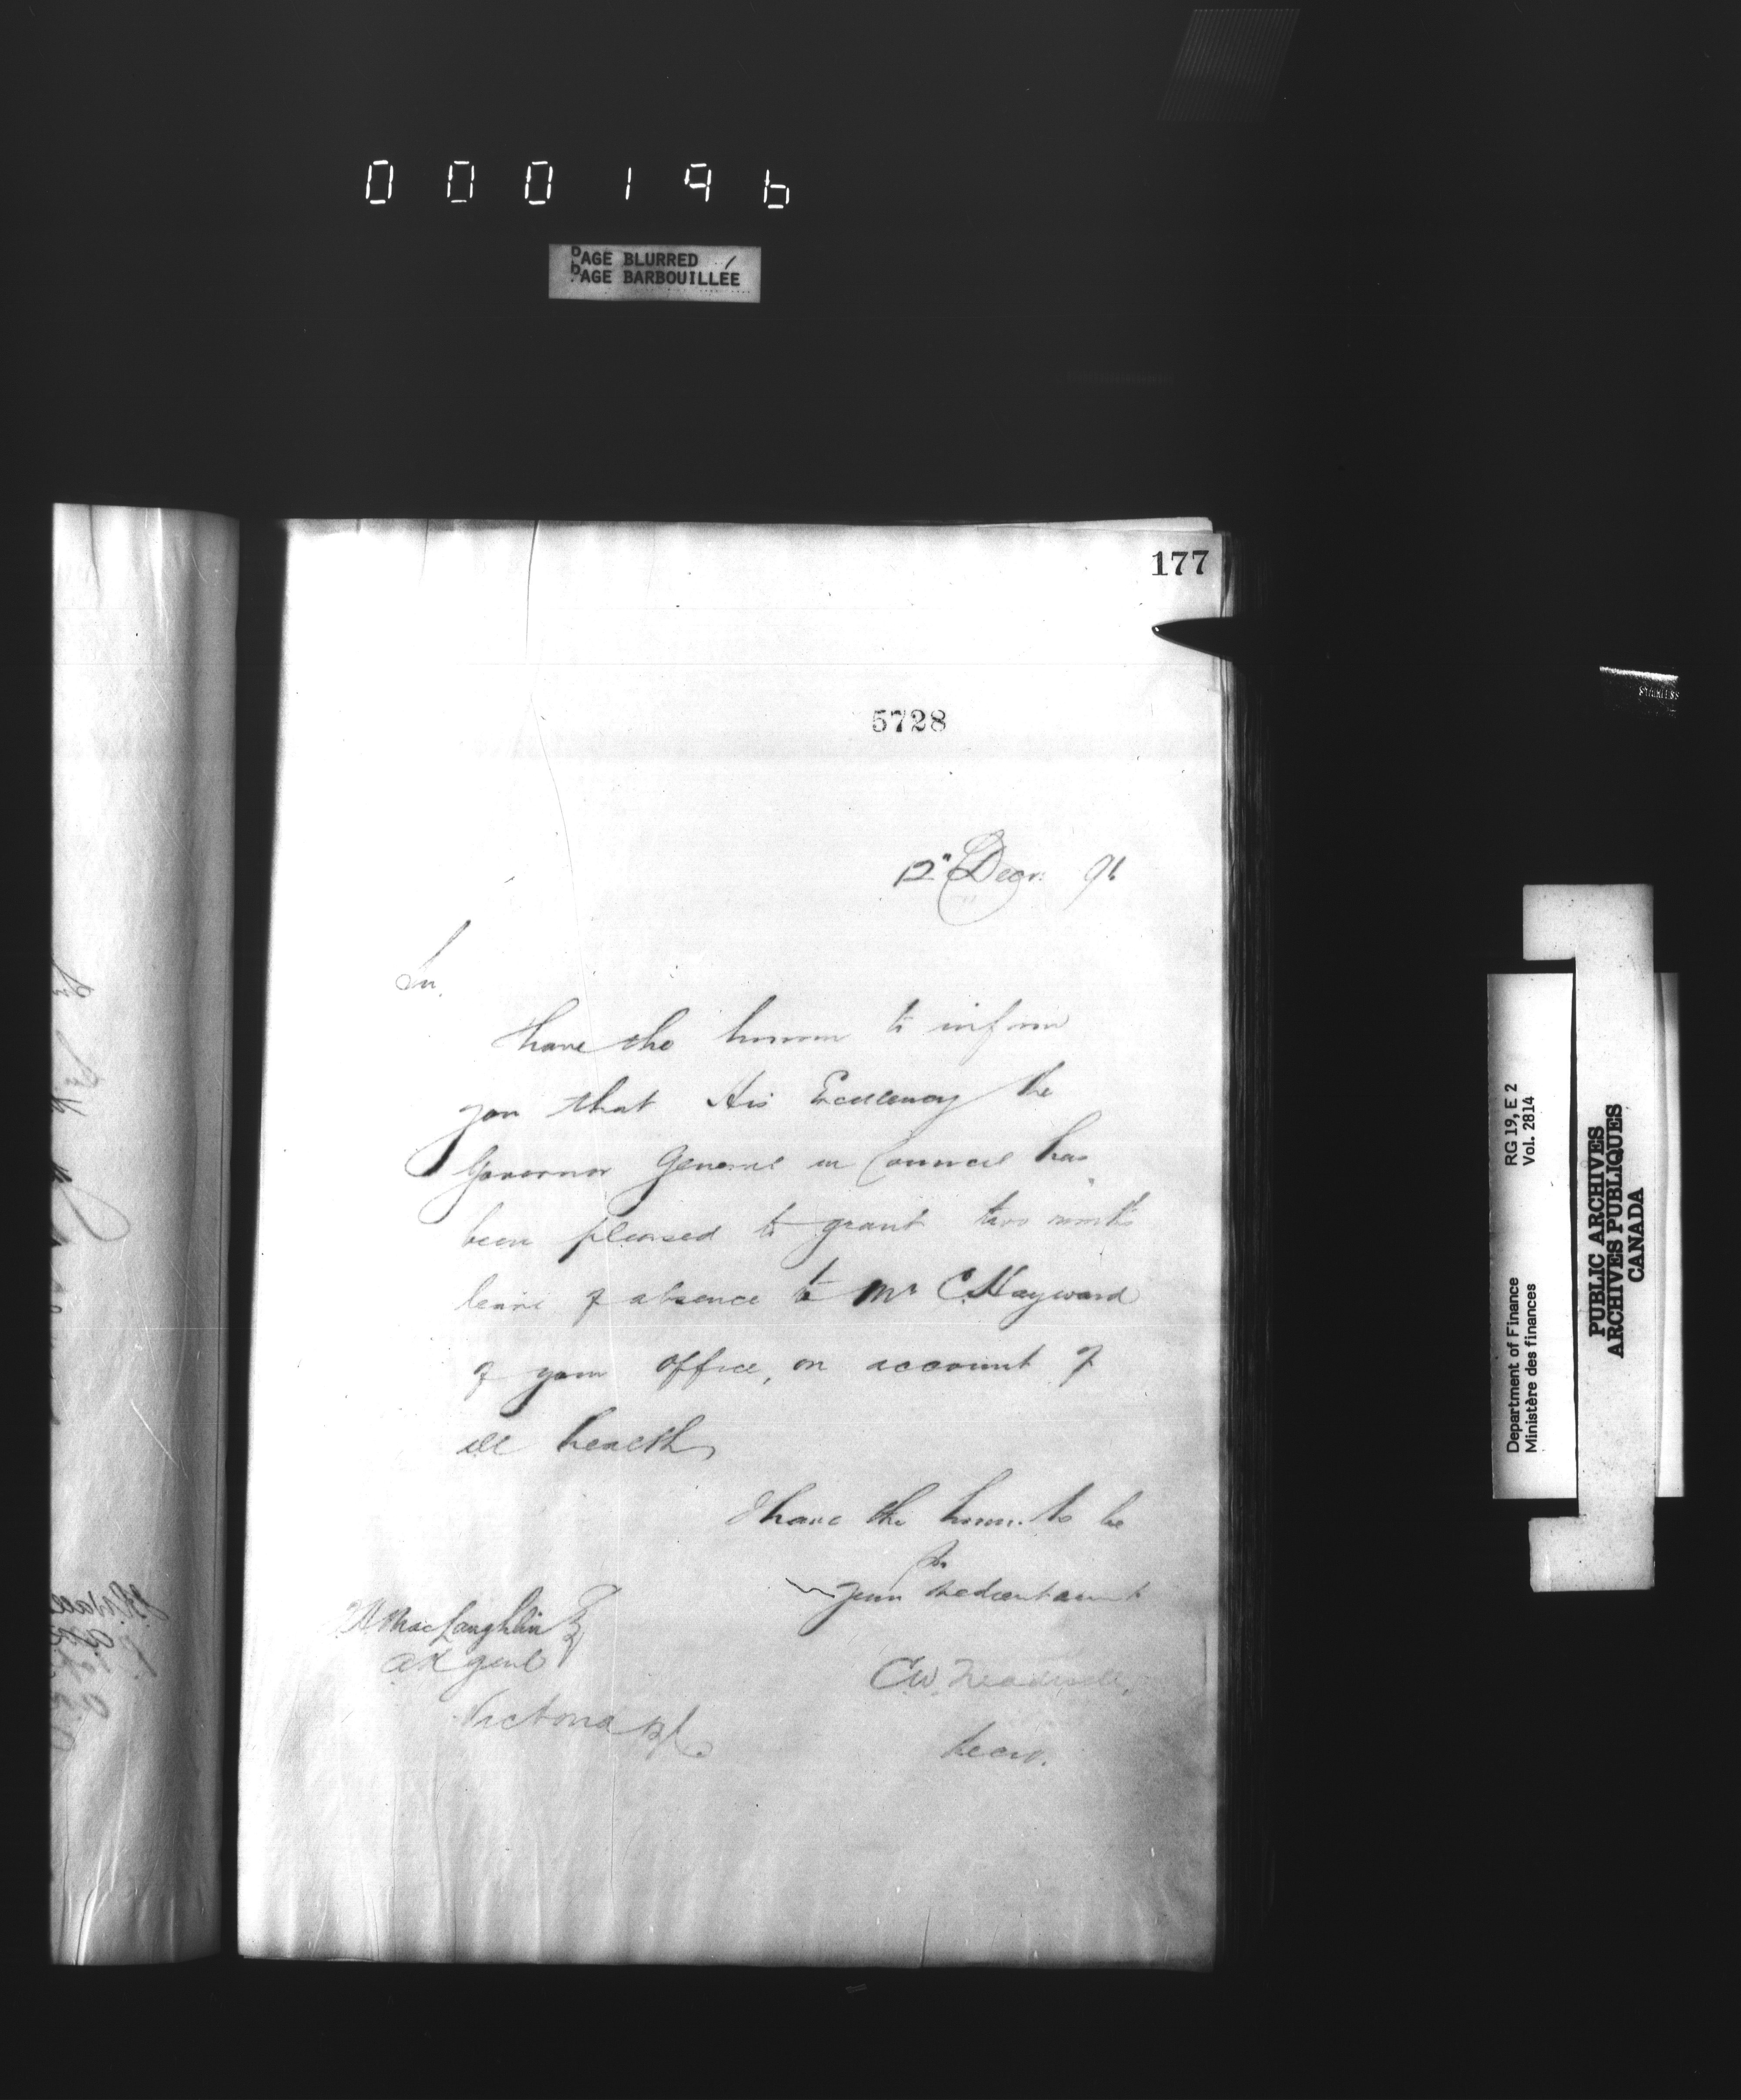 000196
PAGE BLURRED
PAGE BARBOUILLÉE
177
5728
12" Decr. 91
Sir,
I have the honour to inform
you that His Excellency the
Governor General in Council has
been pleased to grant two months
leave of absence to Mr C. Hayward
of your office, on account of
ill health,
I have the honr. to be
Sir
Your obedient servant
MacLaughlin Esq
Genl
Victoria BC
C W
RG 19, E 2
Vol. 2814
Department of Finance
Ministère des finances
PUBLIC ARCHIVES
ARCHIVES PUBLIQUES
CANADA